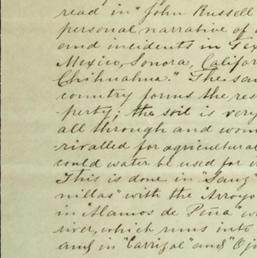 read in "John Russell
personal narrative of
and incidents in Tex
Mexico, Sonora, Califor
Chihuahua." The sa
country forms the res
perty; the soil is very
all through and wou
rivalled for agricultural
could water be used for
This is done in "Sang
nillas" with the "Arroyo
in "Alamos de Peña" w
river, which runs into
and in "Carrizal" and "Oj